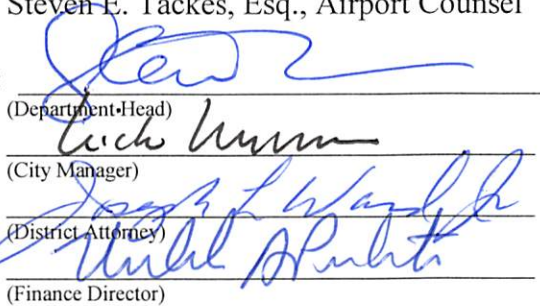 Steven E. Tackes, Esq., Airport Counsel
(Department Head)
(City Manager)
Joseph L Ward, Jr
(District Attorney)
(Finance Director)